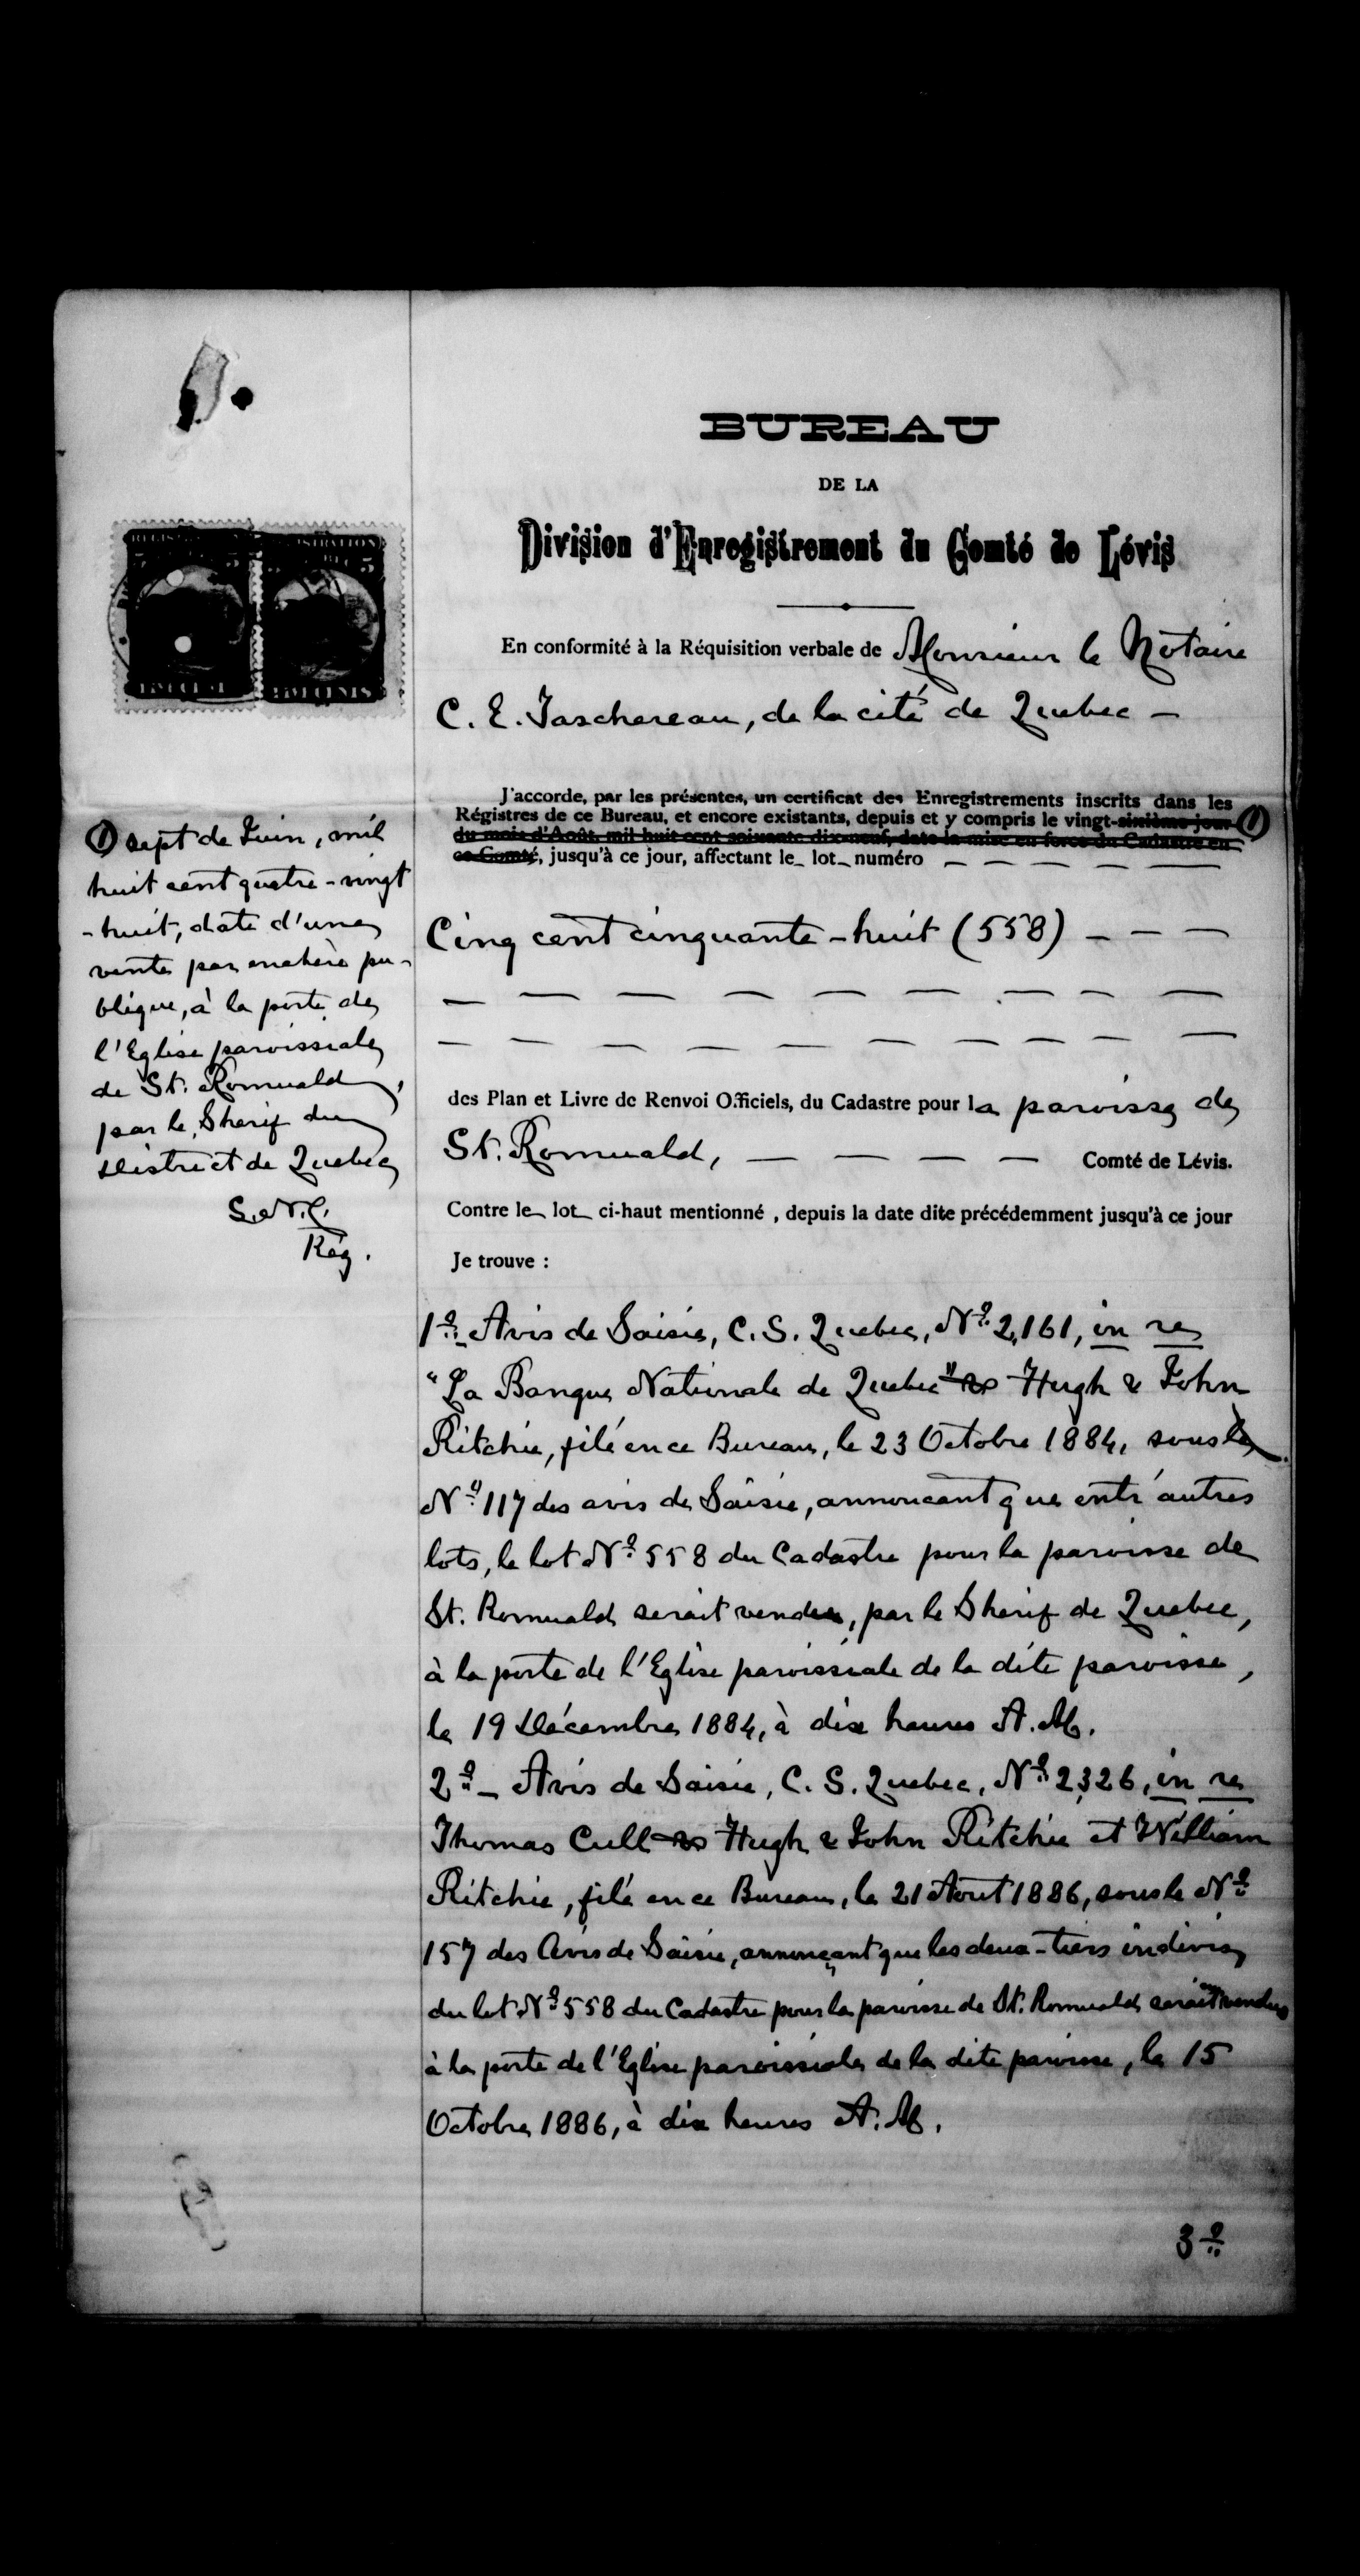 BUREAU
DE LA
Division d'Enregistrement du Comté de Lévis
En conformité à la Réquisition verbale de Monsieur le Notaire
C. E. Taschereau, de la cité de Quebec —
J'accorde, par les présentes, un certificat des Enregistrements inscrits dans les
Régistres de ce Bureau, et encore existants, depuis et y compris le vingt-sixième jour (1)
du mois d'Août, mil huit cent soixante dix-neuf, date la mise en force du Cadastre en
ce Comté, jusqu'à ce jour, affectant le lot numéro — — — — —
(1) sept de Juin, mil
huit cent quatre-vingt
-huit, date d'une
vente par enchère pu-
blique, à la porte de
l'Eglise paroissiale
de St. Romuald,
par le Sherif du
District de Quebec
S.N.C.
Rég.
Cinq cent cinquante-huit (558) — — —
des Plan et Livre de Renvoi Officiels, du Cadastre pour la paroisse de
St. Romuald, — — — — Comté de Lévis.
Contre le lot ci-haut mentionné, depuis la date dite précédemment jusqu'à ce jour
Je trouve :
1º. Avis de Saisie, C. S. Quebec, Nº. 2,161, in re
"La Banque Nationale de Quebec" vs Hugh & John
Ritchie, filé en ce Bureau, le 23 Octobre 1884, sous le
Nº. 117 des avis de Saisie, annoncant que entr'autres
lots, le lot Nº. 558 du Cadastre pour la paroisse de
St. Romuald serait vendu, par le Sherif de Quebec,
à la porte de l'Eglise paroissiale de la dite paroisse,
le 19 Décembre 1884, à dix heures A. M.
2º. — Avis de Saisie, C. S. Quebec, Nº. 2,326, in re
Thomas Cull vs Hugh & John Ritchie et William
Ritchie, filé en ce Bureau, le 21 Aout 1886, sous le Nº.
157 des Avis de Saisie, annonçant que les deux-tiers indivis
du lot Nº. 558 du Cadastre pour la paroisse de St. Romuald seraient vendus
à la porte de l'Eglise paroissiale de la dite paroisse, le 15
Octobre 1886, à dix heures A. M.
3º.